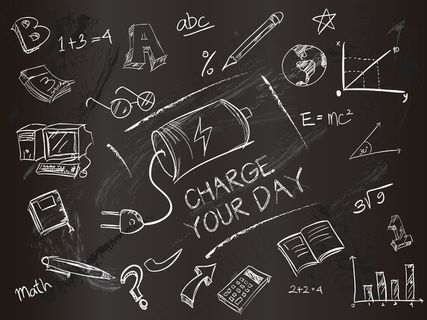 abc
B
1+3=4
A
%
x
10
E=mc²
CHARGE
YOUR DAY
3√9
1
Math
?
2+2=4
0
y